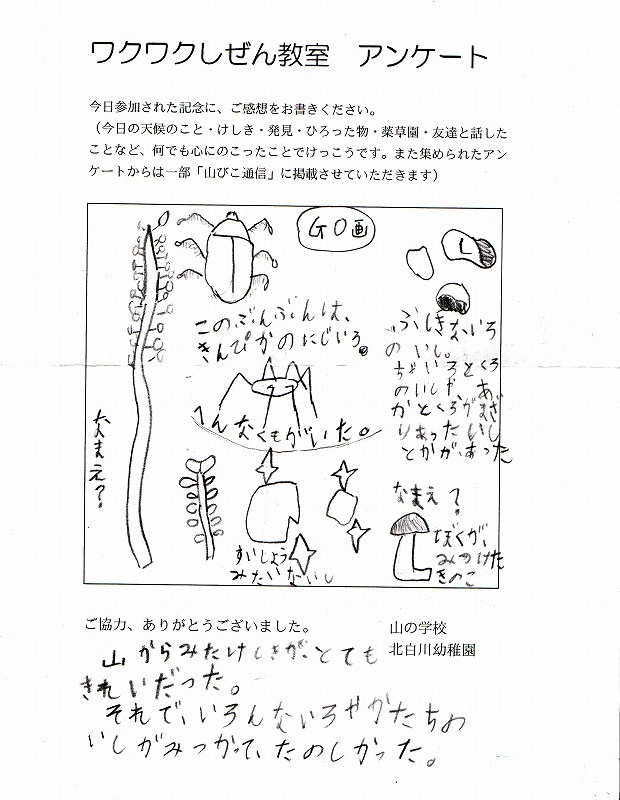 ワクワクしぜん教室　アンケート
今日参加された記念に、ご感想をお書きください。
（今日の天候のこと・けしき・発見・ひろった物・薬草園・友達と話した
ことなど、何でも心にのこったことでけっこうです。また集められたアン
ケートからは一部「山びこ通信」に掲載させていただきます）
GO画
このぶんぶんは、
きんぴかのにじいろ。
ふしきないろ
のいし。
ちゃいろとくろ
のいしや、あ
かとくろがまざ
りあったいし
とかがあった
へんなくもがいた。
なまえ?
すいしょう
みたいないし
なまえ?
ぼくが、
みつけた
きのこ
ご協力、ありがとうございました。
山の学校
北白川幼稚園
山からみたけしきが、とても
きれいだった。
それで、いろんないろやかたちの
いしがみつかって、たのしかった。